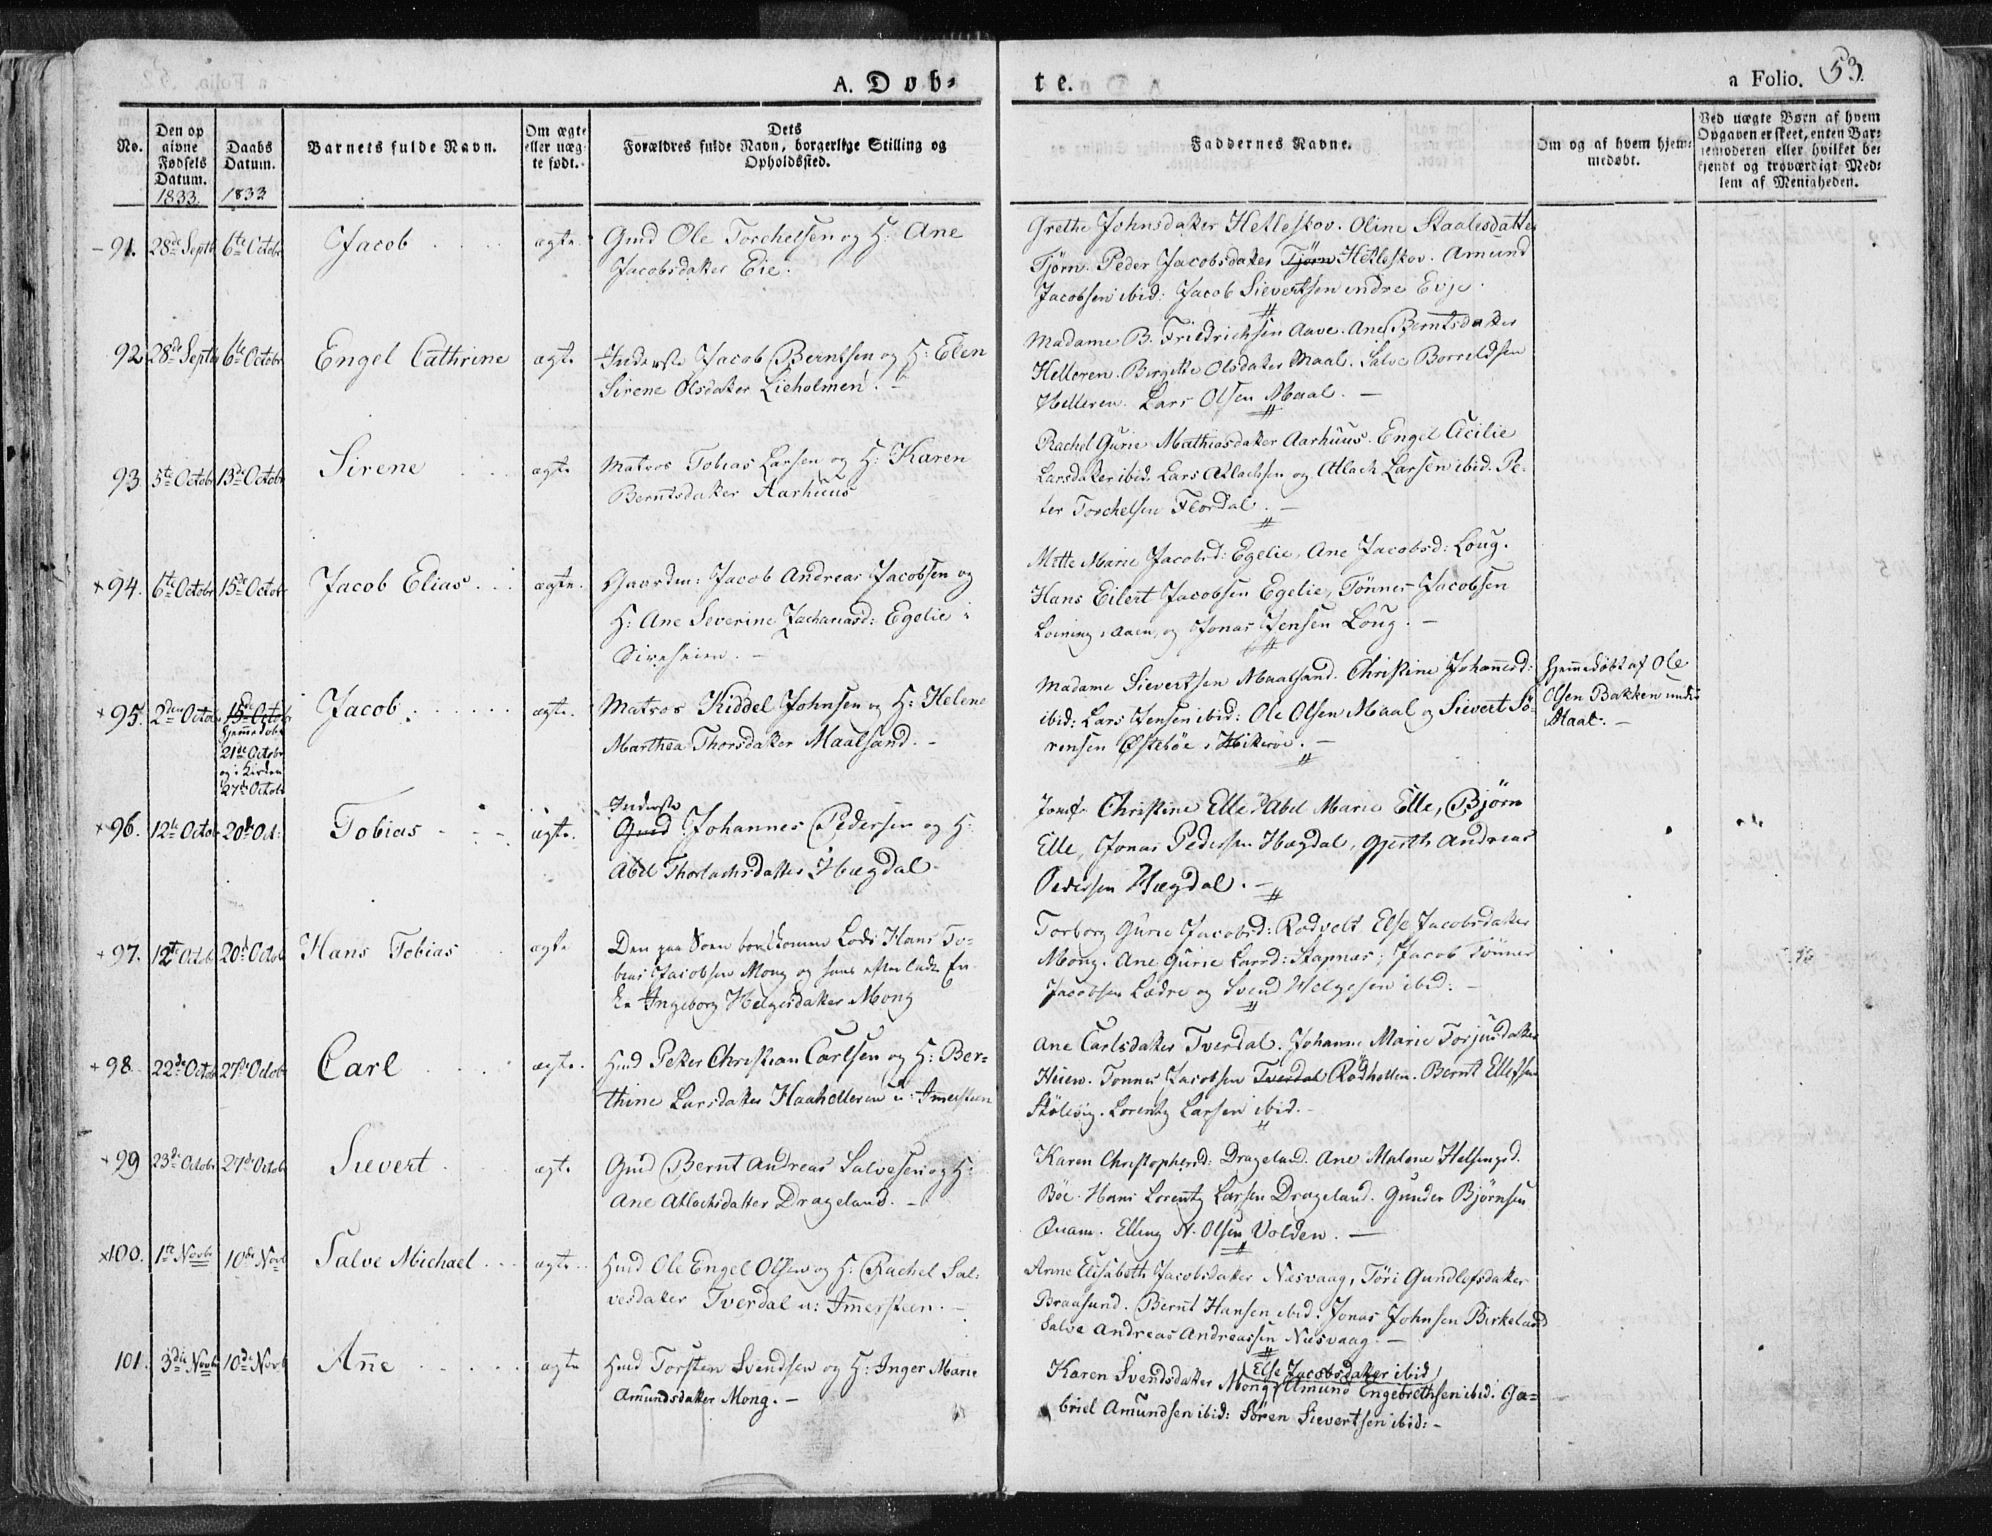 A. Døb-
te.
a Folio. 53.
No.
Den op
givne
Fødsels
Datum.
1833.
Daabs
Datum.
1833
Barnets fulde Navn.
Om ægte
eller uæg-
te født.
Dets
Forældres fulde Navn, borgerlige Stilling og
Opholdssted.
Faddernes Navne.
Om og af hvem hjem-
medøbt.
Ved uægte Børn af hvem
Opgaven er skeet, enten Bar-
nemoderen eller hvilket be-
kjendt og troværdigt Med-
lem af Menigheden.
91. 28de Septb 6te Octobr Jacob ægte Gmd Ole Torchelsen og H: Ane
Jacobsdatter Eie.
Grethe Johnsdatter Hetleskov. Oline Staalesdatter
Tjørn. Peder Jacobsdatter Tjørn Hetleskov. Amund
Jacobsen ibid: Jacob Sievertsen indre Evje.
92 28de Septb 6te Octobr Engel Cathrine ægte Inderste Jacob Berntsen og H: Elen
Sirene Olsdatter Lieholmen.
Madame B. Friedrichsen Aave. Ane Berntsdatter
Helleren. Birgitte Olsdatter Maal. Salve Borreldsen
Helleren. Lars Olsen Maal.
93 5te Octobr 13de Octobr Sirene ægte Matros Tobias Larsen og H: Karen
Berntsdatter Aarhuus
Rachel Gurie Mathiasdatter Aarhuus. Engel Cicilie
Larsdatter ibid. Lars Atlachsen og Atlach Larsen ibid. Pe-
ter Torchelsen Flordal.
94. 6te Octobr 15de Octobr Jacob Elias ægte. Gaardm: Jacob Andreas Jacobsen og
H: Ane Severine Zachariasd: Egelie i
Sireheien.
Mette Marie Jacobsd: Egelie, Ane Jacobsd: Loug.
Hans Eilert Jacobsen Egelie, Tønnes Jacobsen
Loining i Aaen, og Jonas Jensen Loug.
95. 2den Octobr 15de Octobr
hjemmedøbt
21de Octobr
og i Kirken
27de Octobr
Jacob ægte. Matros Kiddel Johnsen og H: Helene
Marthea Thorsdatter Maalsand.
Madame Sievertsen Maalsand. Christine Johannesd:
ibid: Lars Jensen ibid: Ole Olsen Maal og Sievert Sø-
rensen Østebøe i Hitterøe.
Hjemmedøbt af Ole
Olsen Bakken under
Maal.
96. 12te Octobr 20de Oct: Tobias ægte. Inderste
Gmd Johannes Pedersen og H:
Abel Thorlachsdatter Hægdal.
Jomfr Christine Elle, Abel Marie Elle, Bjørn
Elle, Jonas Pedersen Hægdal, Gjerth Andreas
Pedersen Hægdal.
97. 12te Octobr 20de Octobr Hans Tobias ægte Den paa Søen bortkomne Lods Hans To-
bias Jacobsen Mong og hans efterladte En-
ke Ingeborg Helgesdatter Mong
Torborg Gurie Jacobsd: Rodvelt Else Jacobsdatter
Mong. Ane Gurie Larsd: Stapnas; Jacob Tønnes
Jacobsen Lædre og Svend Helgesen ibid:
98. 22de Octobr 27de Octobr Carl ægte. Hmd Petter Christian Carlsen og H: Ber-
thine Larsdatter Haahelleren u: Immersteen
Ane Carlsdatter Tverdal. Johanne Marie Torjusdatter
Huen. Tonnes Jacobsen Tverdal Rødhollen. Bernt Ellefsen
Stølevig. Lorentz Larsen ibid.
99 23de Octobr 27de Octobr Sievert ægte Gmd Bernt Andreas Salvesen og H:
Ane Atlachsdatter Drageland.
Karen Christophersd: Drageland. Ane Malene Helsingsd.
Bøe. Hans Lorentz Larsen Drageland. Gunder Bjørnsen
Quam. Elling N. Olsen Volden.
100. 1te Novbr 10de Novbr Salve Michael ægte Hmd Ole Engel Olsen og H: Rachel Sal-
vesdatter Tverdal u: Immersteen.
Anne Elisabeth Jacobsdatter Næsvaag, Tøri Gundlefsdatter
Braasund. Bernt Hansen ibid: Jonas Johnsen Birkeland
Salve Andreas Andreassen Næsvaag.
101. 3die Novbr 10de Novbr Anne ægte Hmd Torsten Svendsen og H: Inger Marie
Amundsdatter Mong.
Else Jacobsdatter ibid
Karen Svendsdatter Mong Amund Engebrethsen ibid. Ga-
briel Amundsen ibid: Søren Sievertsen ibid: